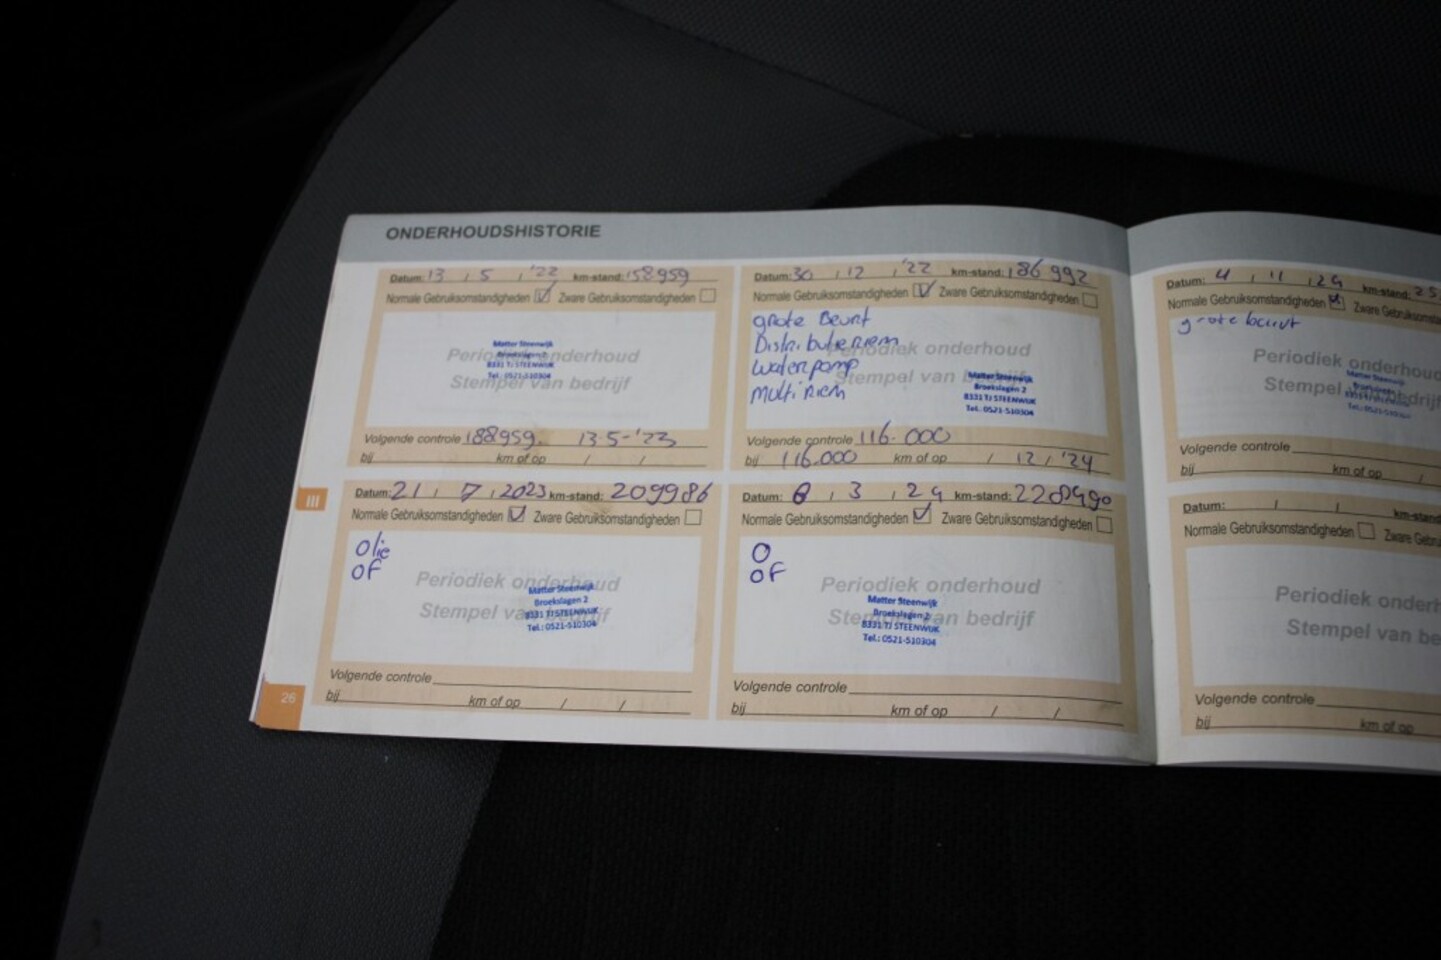 ONDERHOUDSHISTORIE
Datum: 13 / 5 / '22 km-stand: 158959
Normale Gebruiksomstandigheden Zware Gebruiksomstandigheden
Periodiek onderhoud
Stempel van bedrijf
Matter Steenwijk
Broekslagen 2
8331 TJ STEENWIJK
Tel.: 0521-510304
Volgende controle 188959. 13-5-'23
bij km of op / /
Datum: 30 / 12 / '22 km-stand: 186992
Normale Gebruiksomstandigheden Zware Gebruiksomstandigheden
grote Beurt
Distributieriem
Waterpomp
Multiriem
Periodiek onderhoud
Stempel van bedrijf
Matter Steenwijk
Broekslagen 2
8331 TJ STEENWIJK
Tel.: 0521-510304
Volgende controle 116.000
bij 116.000 km of op / 12 / '24
Datum: 21 / 7 / 2023 km-stand: 209986
Normale Gebruiksomstandigheden Zware Gebruiksomstandigheden
Olie
OF
Periodiek onderhoud
Stempel van bedrijf
Matter Steenwijk
Broekslagen 2
8331 TJ STEENWIJK
Tel.: 0521-510304
Volgende controle
bij km of op / /
Datum: 8 / 3 / 24 km-stand: 2208490
Normale Gebruiksomstandigheden Zware Gebruiksomstandigheden
O
OF
Periodiek onderhoud
Stempel van bedrijf
Matter Steenwijk
Broekslagen 2
8331 TJ STEENWIJK
Tel.: 0521-510304
Volgende controle
bij km of op / /
III
26
Datum: 4 / 11 / 24 km-stand: 25
Normale Gebruiksomstandigheden Zware Gebruiksomsta
grote beurt
Periodiek onderhoud
Stempel van bedrijf
Matter Steenwijk
Broekslagen 2
8331 TJ STEENWIJK
Tel.: 0521-510304
Volgende controle
bij km of op /
Datum: / / km-stand
Normale Gebruiksomstandigheden Zware Gebru
Periodiek onderh
Stempel van be
Volgende controle
bij km of op